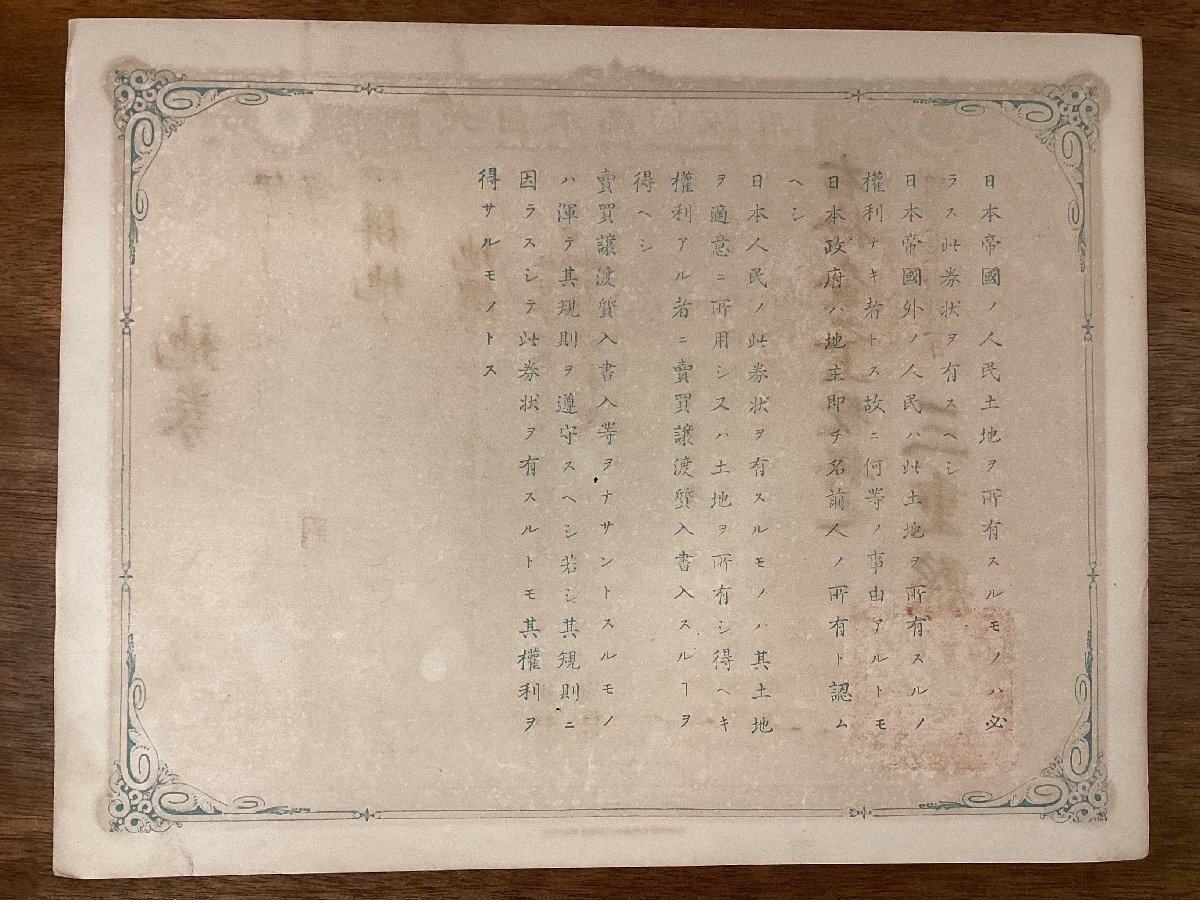 日本帝國ノ人民土地ヲ所有スルモノハ必
ラス此券狀ヲ有スヘシ
日本帝國外ノ人民ハ此土地ヲ所有スルノ
權利ナキ者トス故ニ何等ノ事由アルトモ
日本政府ハ地主即チ名前人ノ所有ト認ム
ヘシ
日本人民ノ此券狀ヲ有スルモノハ其土地
ヲ適意ニ所用シ又ハ土地ヲ所有シ得ヘキ
權利アル者ニ賣買讓渡質入書入スルヿヲ
得ヘシ
賣買讓渡質入書入等ヲナサントスルモノ
ハ渾テ其規則ヲ遵守スヘシ若シ其規則ニ
因ラスシテ此券狀ヲ有スルトモ其權利ヲ
得サルモノトス